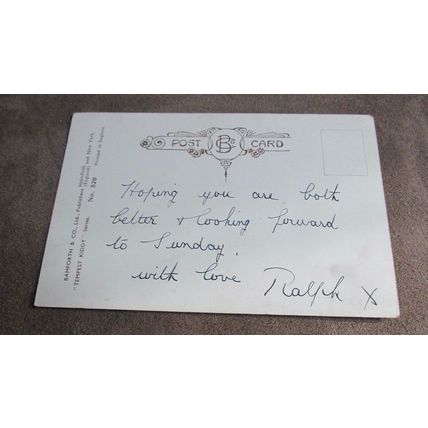 POST CARD
Hoping you are both
better & looking forward
to Sunday.
with love
Ralph X
BAMFORTH & CO., Ltd., Publishers, Holmfirth
(England) and New York
"TEMPEST KIDDY" Series. No. 520
Printed in England